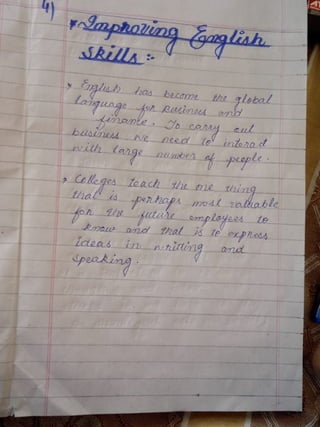 4)
* Improving English
Skills :-
* English has become the global
language for business and
finance. To carry out
business we need to interact
with large number of people.
* Colleges teach the one thing
that is perhaps most valuable
for the future employees to
know and that is to express
ideas in writting and
speaking.